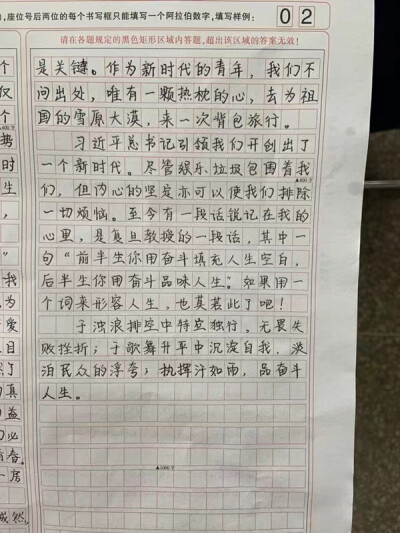 座位号后两位的每个书写框只能填写一个阿拉伯数字,填写样例: 0 2
请在各题规定的黑色矩形区域内答题,超出该区域的答案无效!
是关键。作为新时代的青年，我们不
问出处，唯有一颗热枕的心，去为祖
国的雪原大漠，来一次背包旅行。
习近平总书记引领我们开创出了
一个新时代。尽管娱乐垃圾包围着我
们，但内心的坚定亦可以使我们排除
一切烦恼。至今有一段话锐记在我的
心里，是复旦教授的一段话，其中一
句“前半生你用奋斗填充人生空白，
后半生你用奋斗品味人生。”如果用一
个词来形容人生，也莫若此了吧！
于浊浪排空中特立独行，无畏失
败挫折；于歌舞升平中沉淀自我，淡
泊民众的浮夸；执挥汗如雨，品奋斗
人生。
▲1000字
个
仅
势
时
生
，
我
为
爱
自
了
真
益
必
青春。
一房
成然